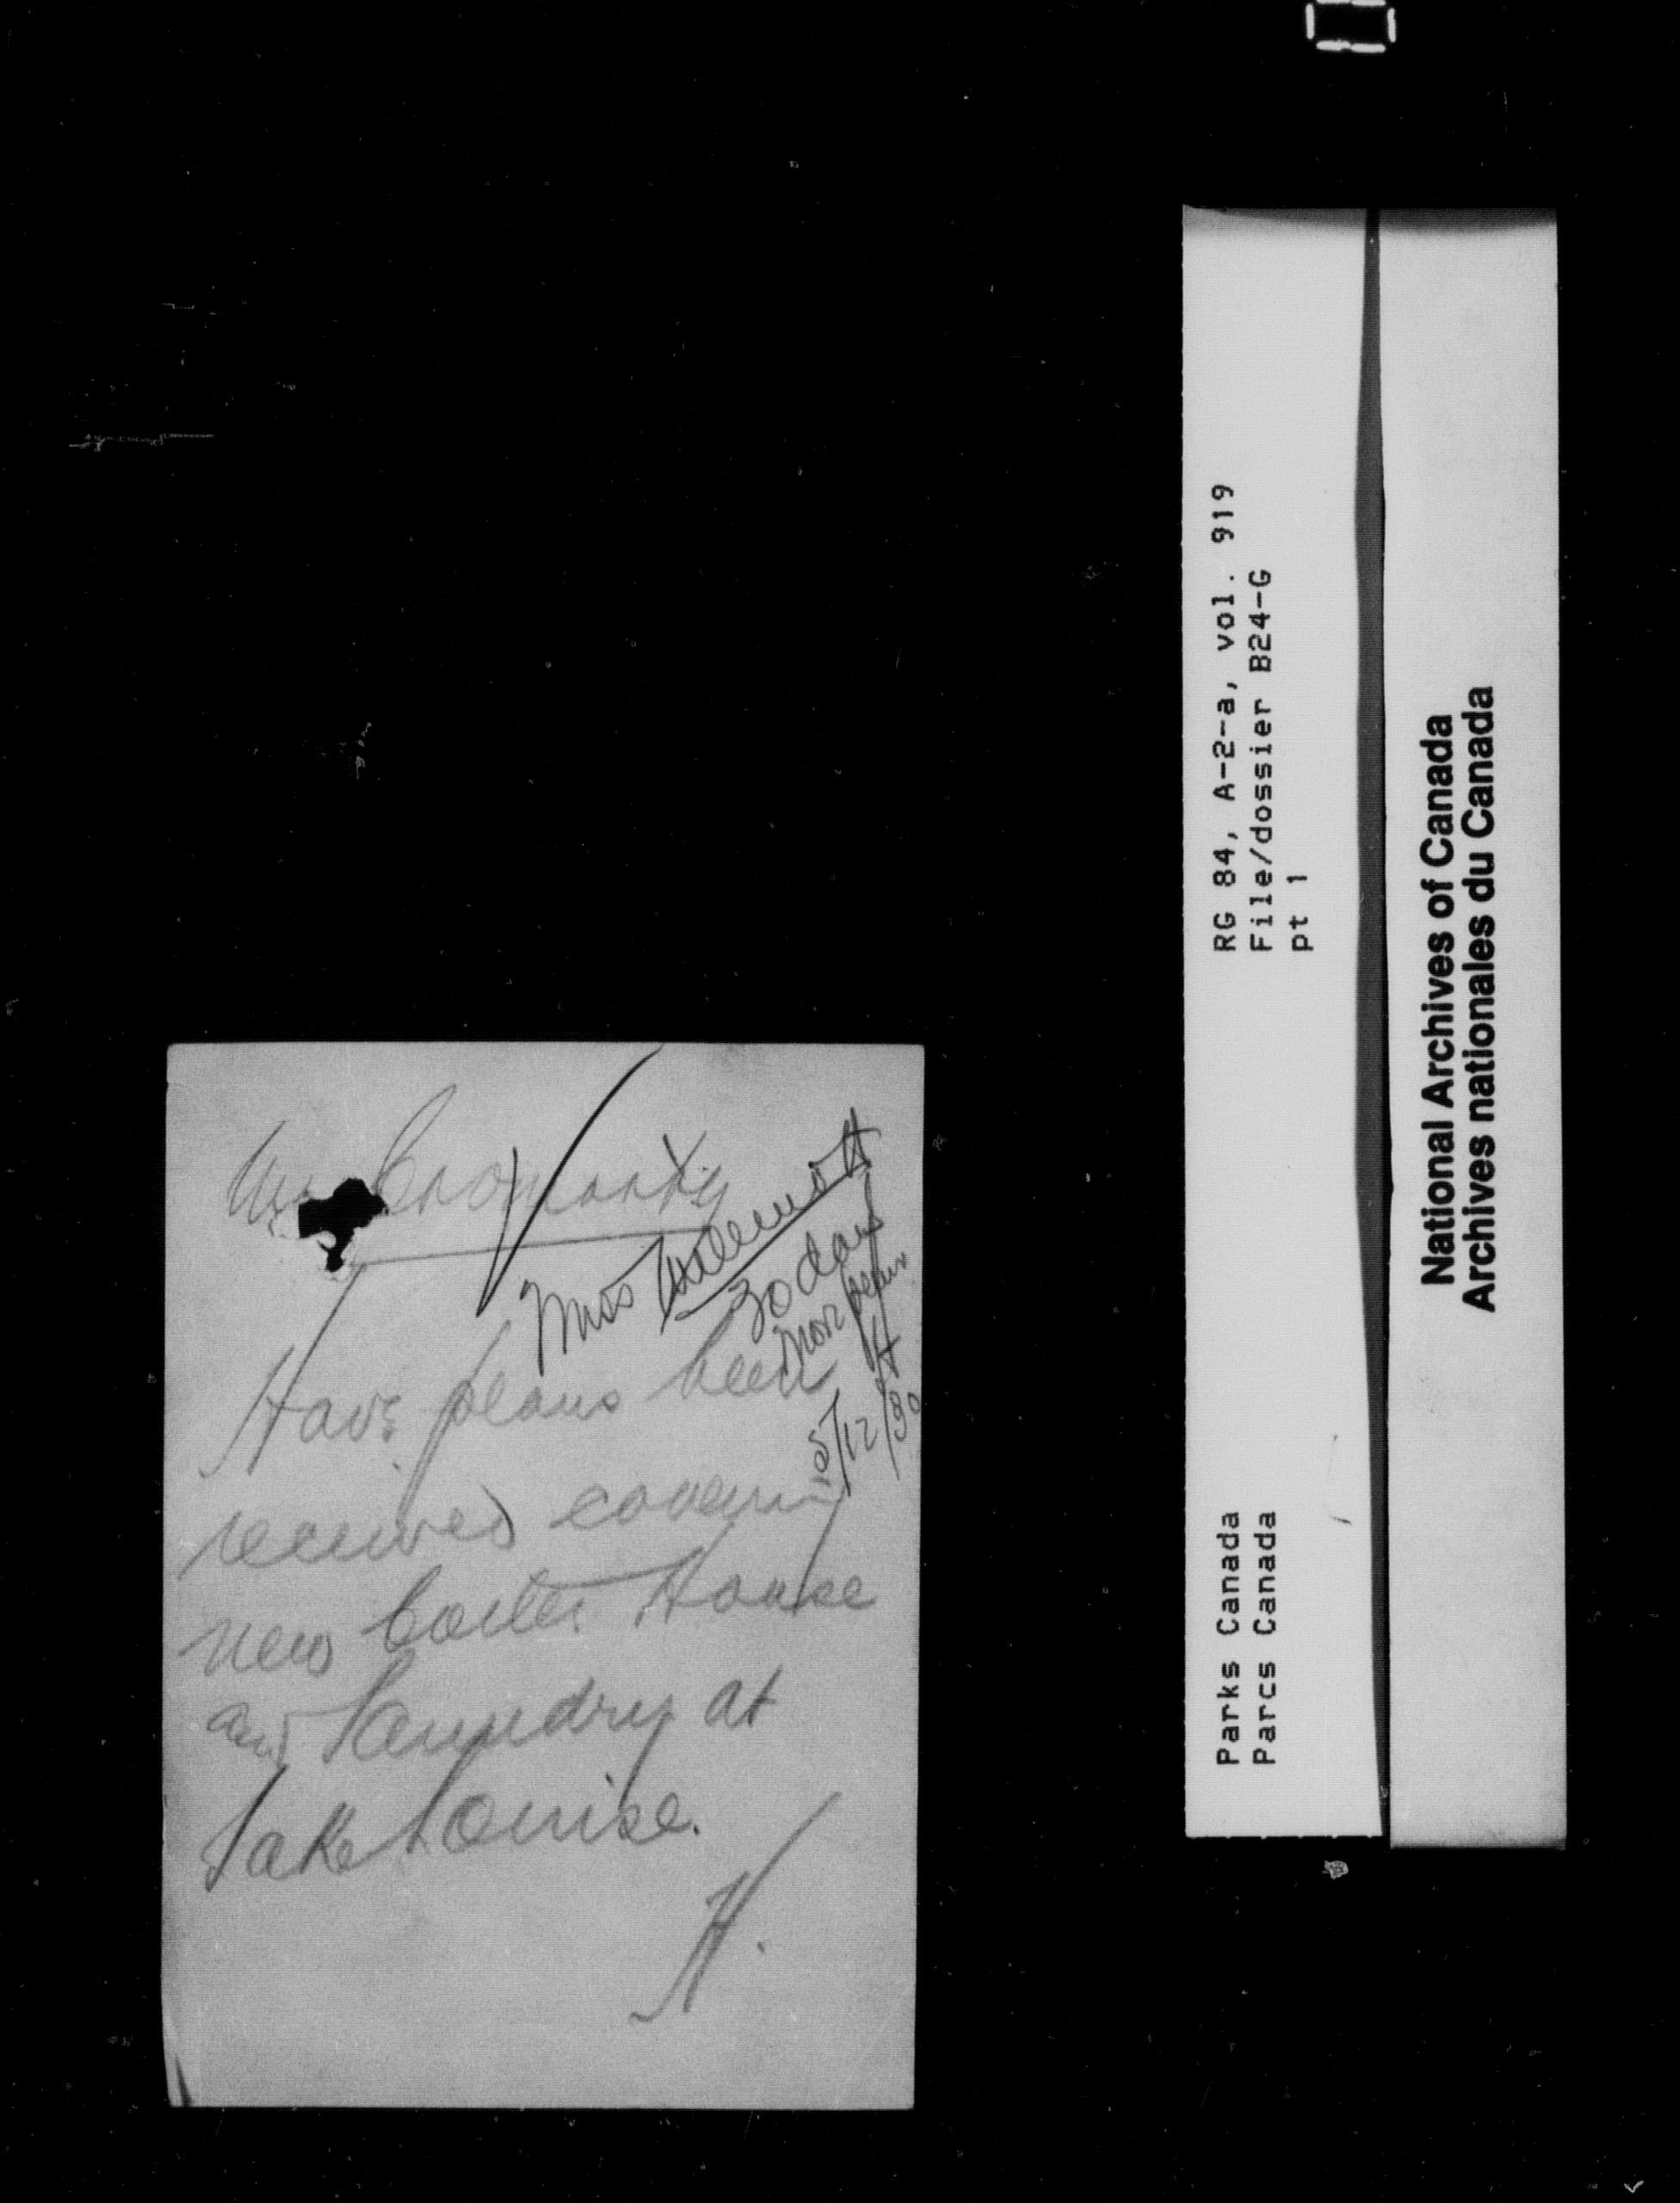 Mr Cromarty
Miss
30 days
Have plans been
5/12/30
received covering
new Boiler House
and Laundry at
Lake Louise.
H.
RG 84, A-2-a, vol. 919
File/dossier B24-G
pt 1
Parks Canada
Parcs Canada
National Archives of Canada
Archives nationales du Canada